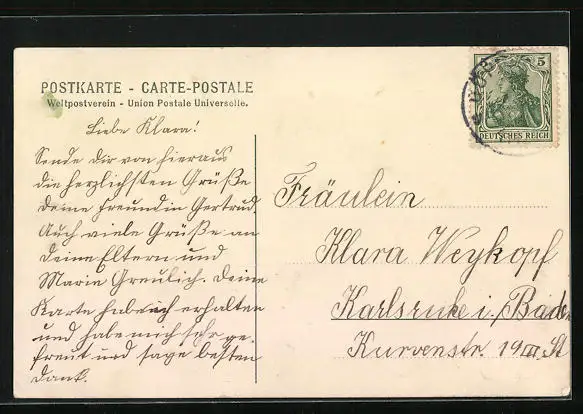 POSTKARTE - CARTE-POSTALE
Weltpostverein - Union Postale Universelle.
5
DEUTSCHES REICH
Liebe Klara!
Sende dir von hieraus
die herzlichsten Grüße
deine Freundin Gertrud.
Auch viele Grüße an
deine Eltern und
Marie Greulich. Deine
Karte habe ich erhalten
und habe mich sehr ge-
freut und sage besten
Dank.
Fräulein
Klara Weykopf
Karlsruhe i. Baden
Kurvenstr. 19 III. St